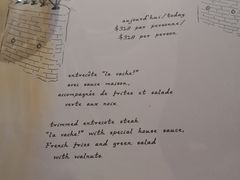 aujourd'hui/today
$32.0 par personne/
$32.0 per person
entrecôte "la vache!"
avec sauce maison,
accompagnée de frites et salade
verte aux noix
trimmed entrecote steak
"la vache!" with special house sauce,
French fries and green salad
with walnuts